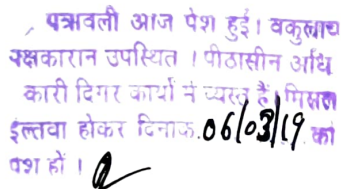 पत्रावली आज पेश हुई। वकुलाय
पक्षकारान उपस्थित । पीठासीन अधि
कारी दिगर कार्यो में व्यस्त है। मिसल
इल्तवा होकर दिनांक 06/03/19 को
पेश हों ।